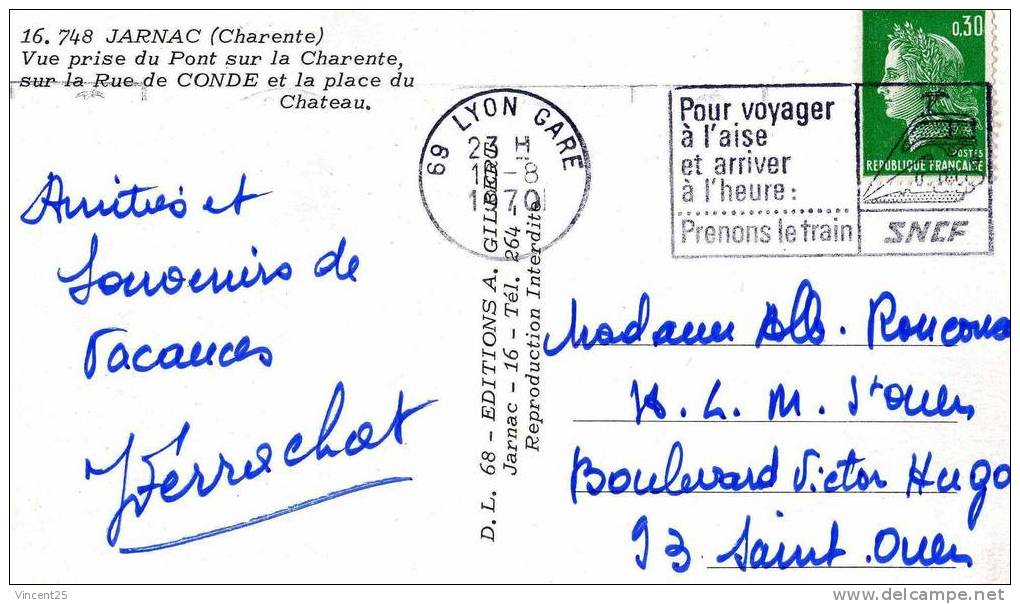 16. 748 JARNAC (Charente)
Vue prise du Pont sur la Charente,
sur la Rue de CONDE et la place du
Chateau.
69 LYON GARE
23 H
1 -8
1970
Pour voyager
à l'aise
et arriver
à l'heure:
Prenons le train
SNCF
0,30
POSTES
REPUBLIQUE FRANCAISE
Amitiés et
Souvenirs de
Vacances
D. L. 68 - EDITIONS A. GILBERT
Jarnac - 16 - Tél. 264 -
Reproduction Interdite
Madame
H. L. M. St Ouen
Boulevard Victor Hugo
93 Saint. Ouen
© Vincent25
delcampe.net